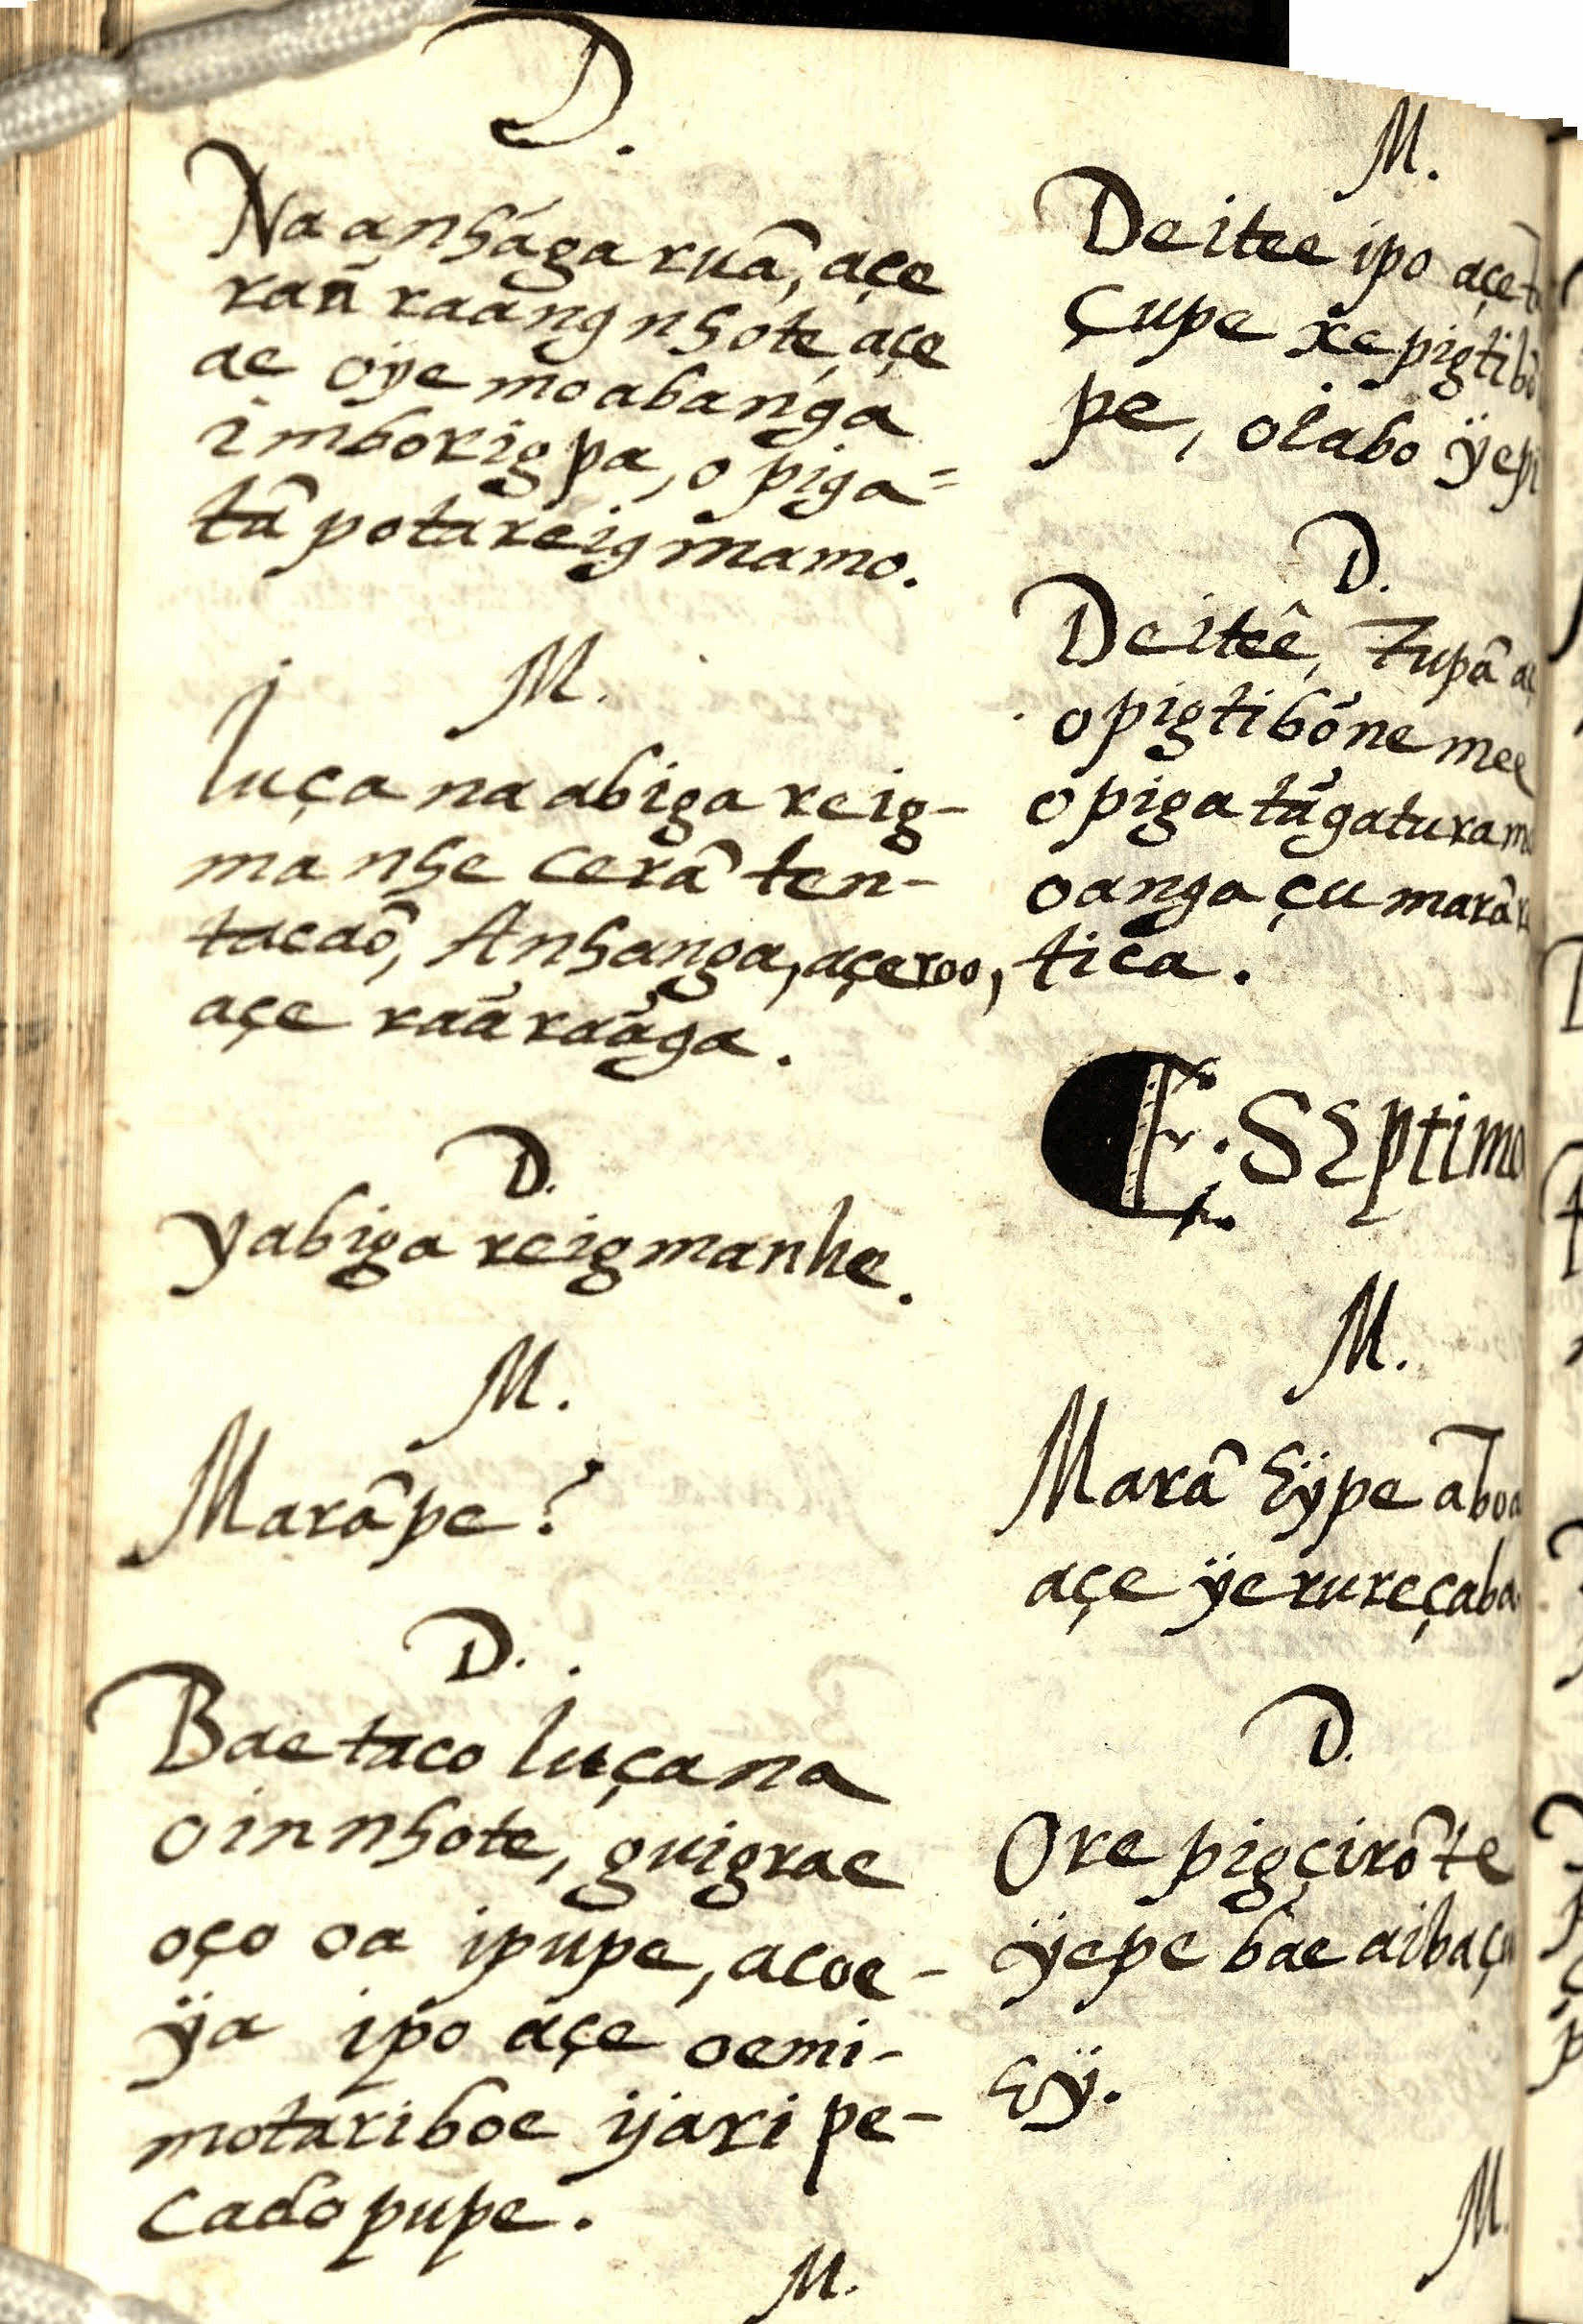 D.
Na anhága ruâ, açe
rañ raang nhote, açe
ae oÿe moabanga
imborigpa, o piga=
tâ potareigmamo.
M.
Iuçana abiga reig-
ma nhe cerâ ten-
tacaõ, Anhanga, açeroo,
açe raâ raâga.
D.
Yabiga reigmanhe.
M.
Marâpe?
D.
Bae taco Iuçana
oin nhote, guigrae
oço oa ipupe, acoe-
ÿa ipo açe oemi-
motariboe ijari pe-
cado pupe.
M.
M.
Deitee ipo açe
Çupe xe pigtibo
pe, oîabo ÿepi
D.
Deiteê, Tupâ
o pigtibône mee
o piga tâgaturam
oanga çu marâ
tica.
Septimo
M.
Marâ hÿpe
açe ÿerureçaba
D.
Ore pigçirôte
ÿepe bae aibaçu
hÿ.
M.